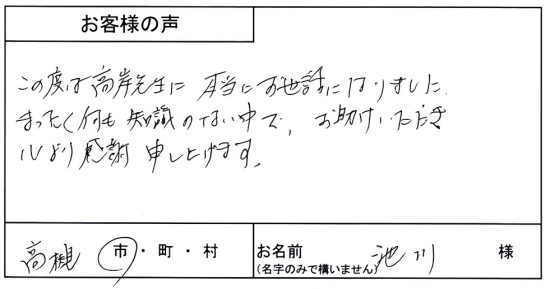 お客様の声
この度は高岸先生に 本当にお世話になりました。
まったく何も知識のない中で、お助けいただき
心より感謝申し上げます。
高槻 市・町・村 お名前 池川 様
(名字のみで構いません)